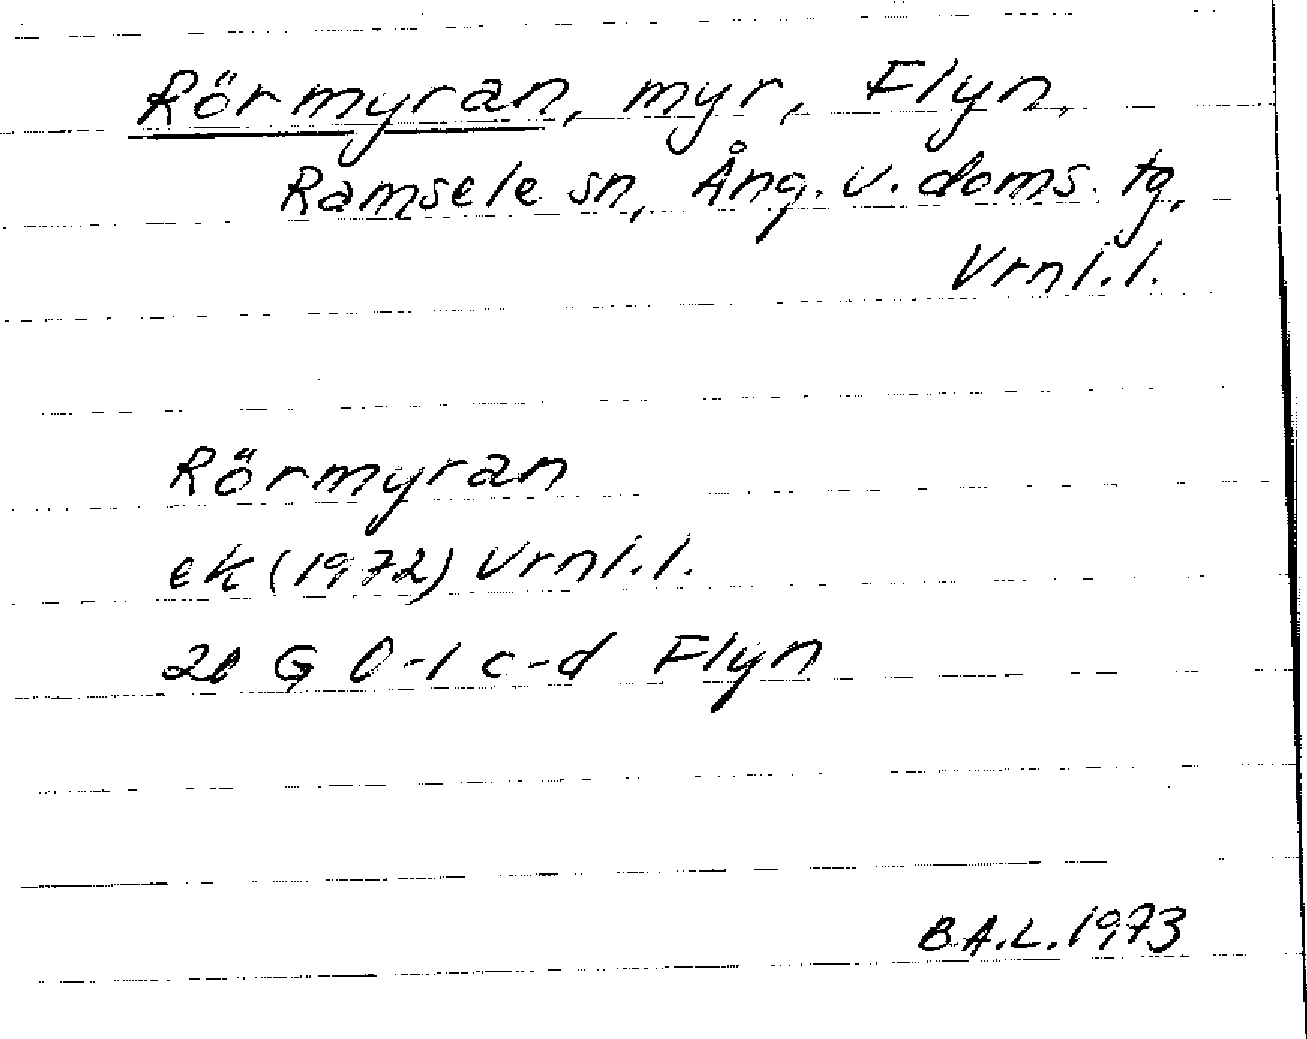 Rörmyran, myr, Flyn,
Ramsele sn, Ång. v. doms. tg,
Vrnl.l.
Rörmyran
ek (1972) Vrnl.l.
20 G 0-1 c-d Flyn
B.A.L. 1973